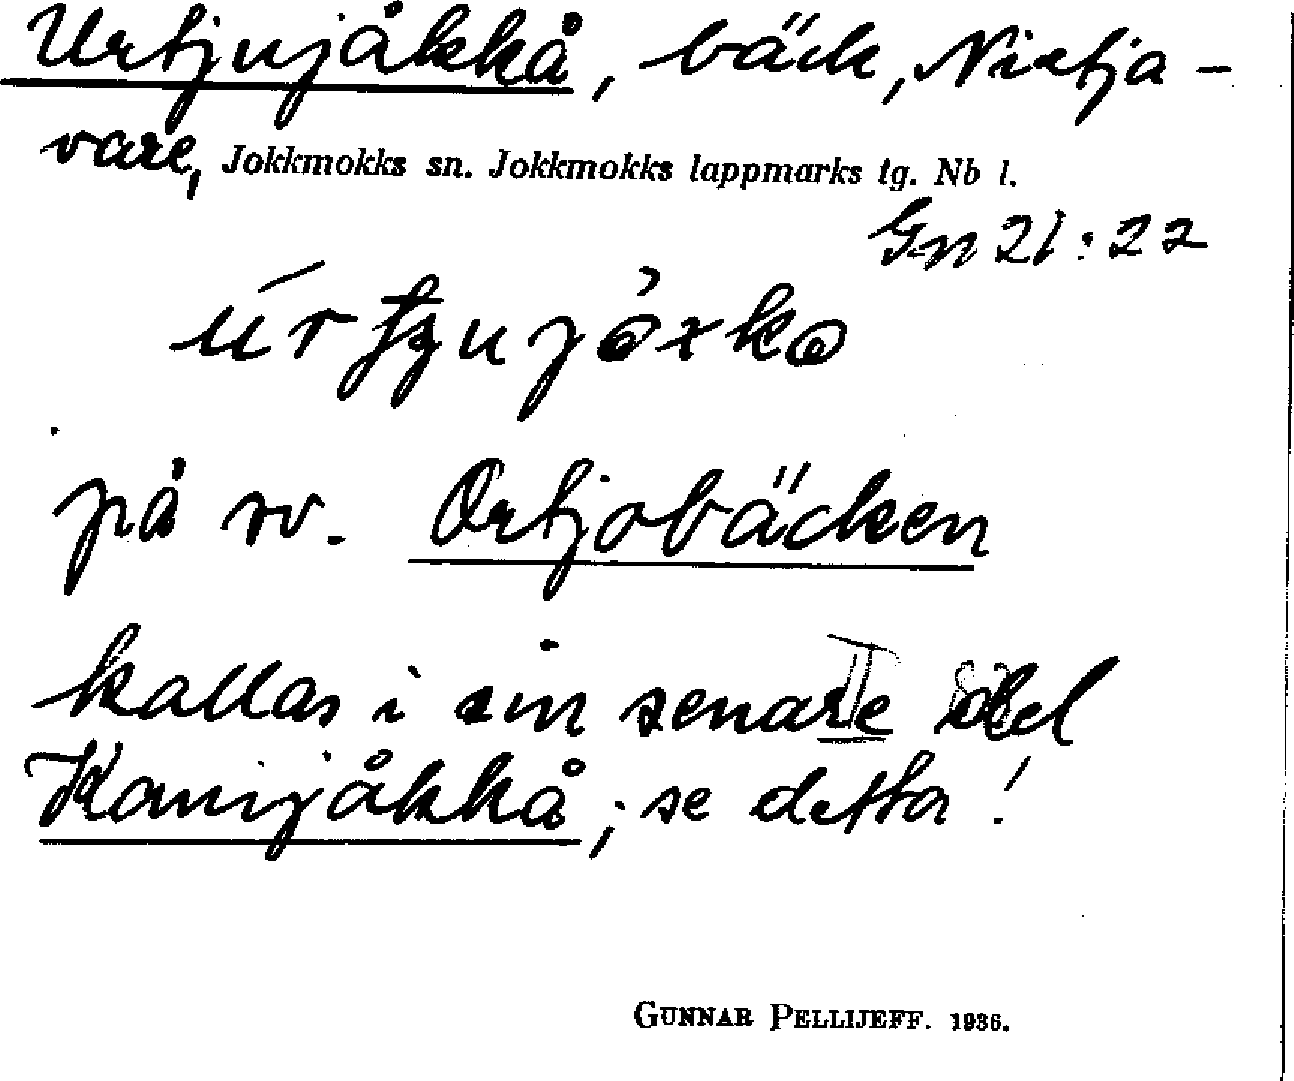 Urtjujåkkå, bäck, Nietja-
vare, Jokkmokks sn. Jokkmokks lappmarks tg. Nb l.
Gn 21:22
på sv. Ortjobäcken
kallas i sin senare del
Kanijåkkå; se detta!
GUNNAR PELLIJEFF. 1936.